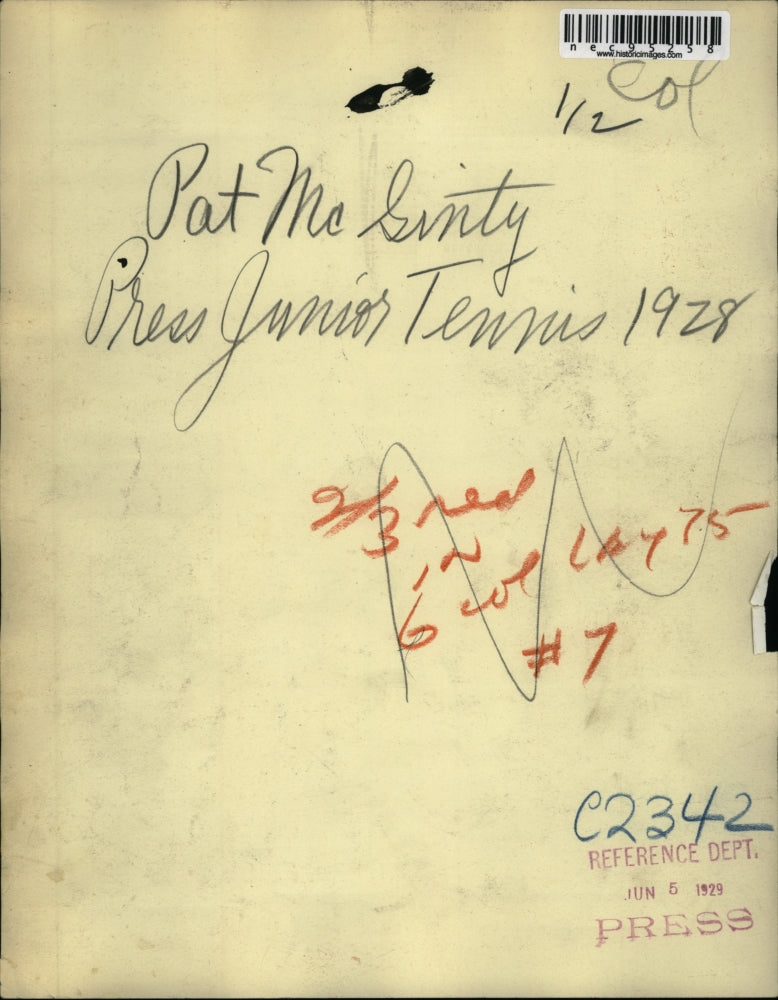 nec95258
www.historicimages.com
1/2 Col
Pat McGinty
Press Junior Tennis 1928
2/3 red
in
6 col Lay 75
#7
C2342
REFERENCE DEPT.
JUN 5 1929
PRESS